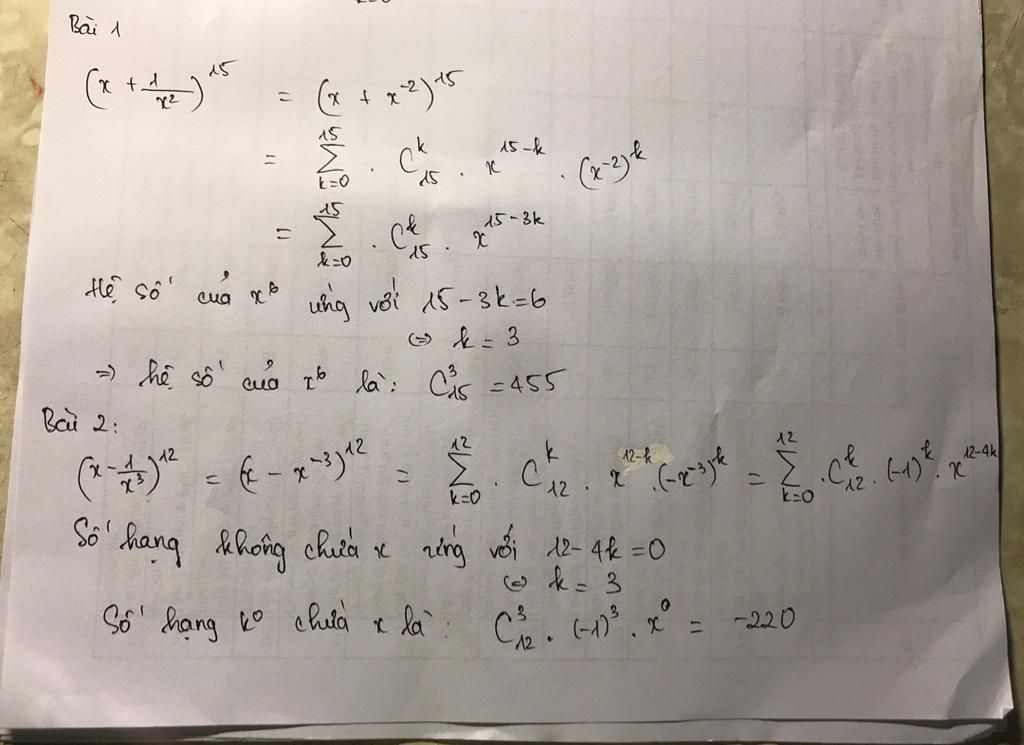 Bài 1
(x + 1/x²)¹⁵ = (x + x⁻²)¹⁵
= ∑_{k=0}^{15} . C_{15}^{k} . x^{15-k} . (x⁻²)^k
= ∑_{k=0}^{15} . C_{15}^{k} . x^{15-3k}
Hệ số của x⁶ ứng với 15 - 3k = 6
⇔ k = 3
⇒ hệ số của x⁶ là: C_{15}^{3} = 455
Bài 2:
(x - 1/x³)¹² = (x - x⁻³)¹² = ∑_{k=0}^{12} . C_{12}^{k} . x^{12-k} . (-x⁻³)^k = ∑_{k=0}^{12} . C_{12}^{k} . (-1)^k . x^{12-4k}
Số hạng không chứa x ứng với 12 - 4k = 0
⇔ k = 3
Số hạng k⁰ chứa x là: C_{12}^{3} . (-1)³ . x⁰ = -220